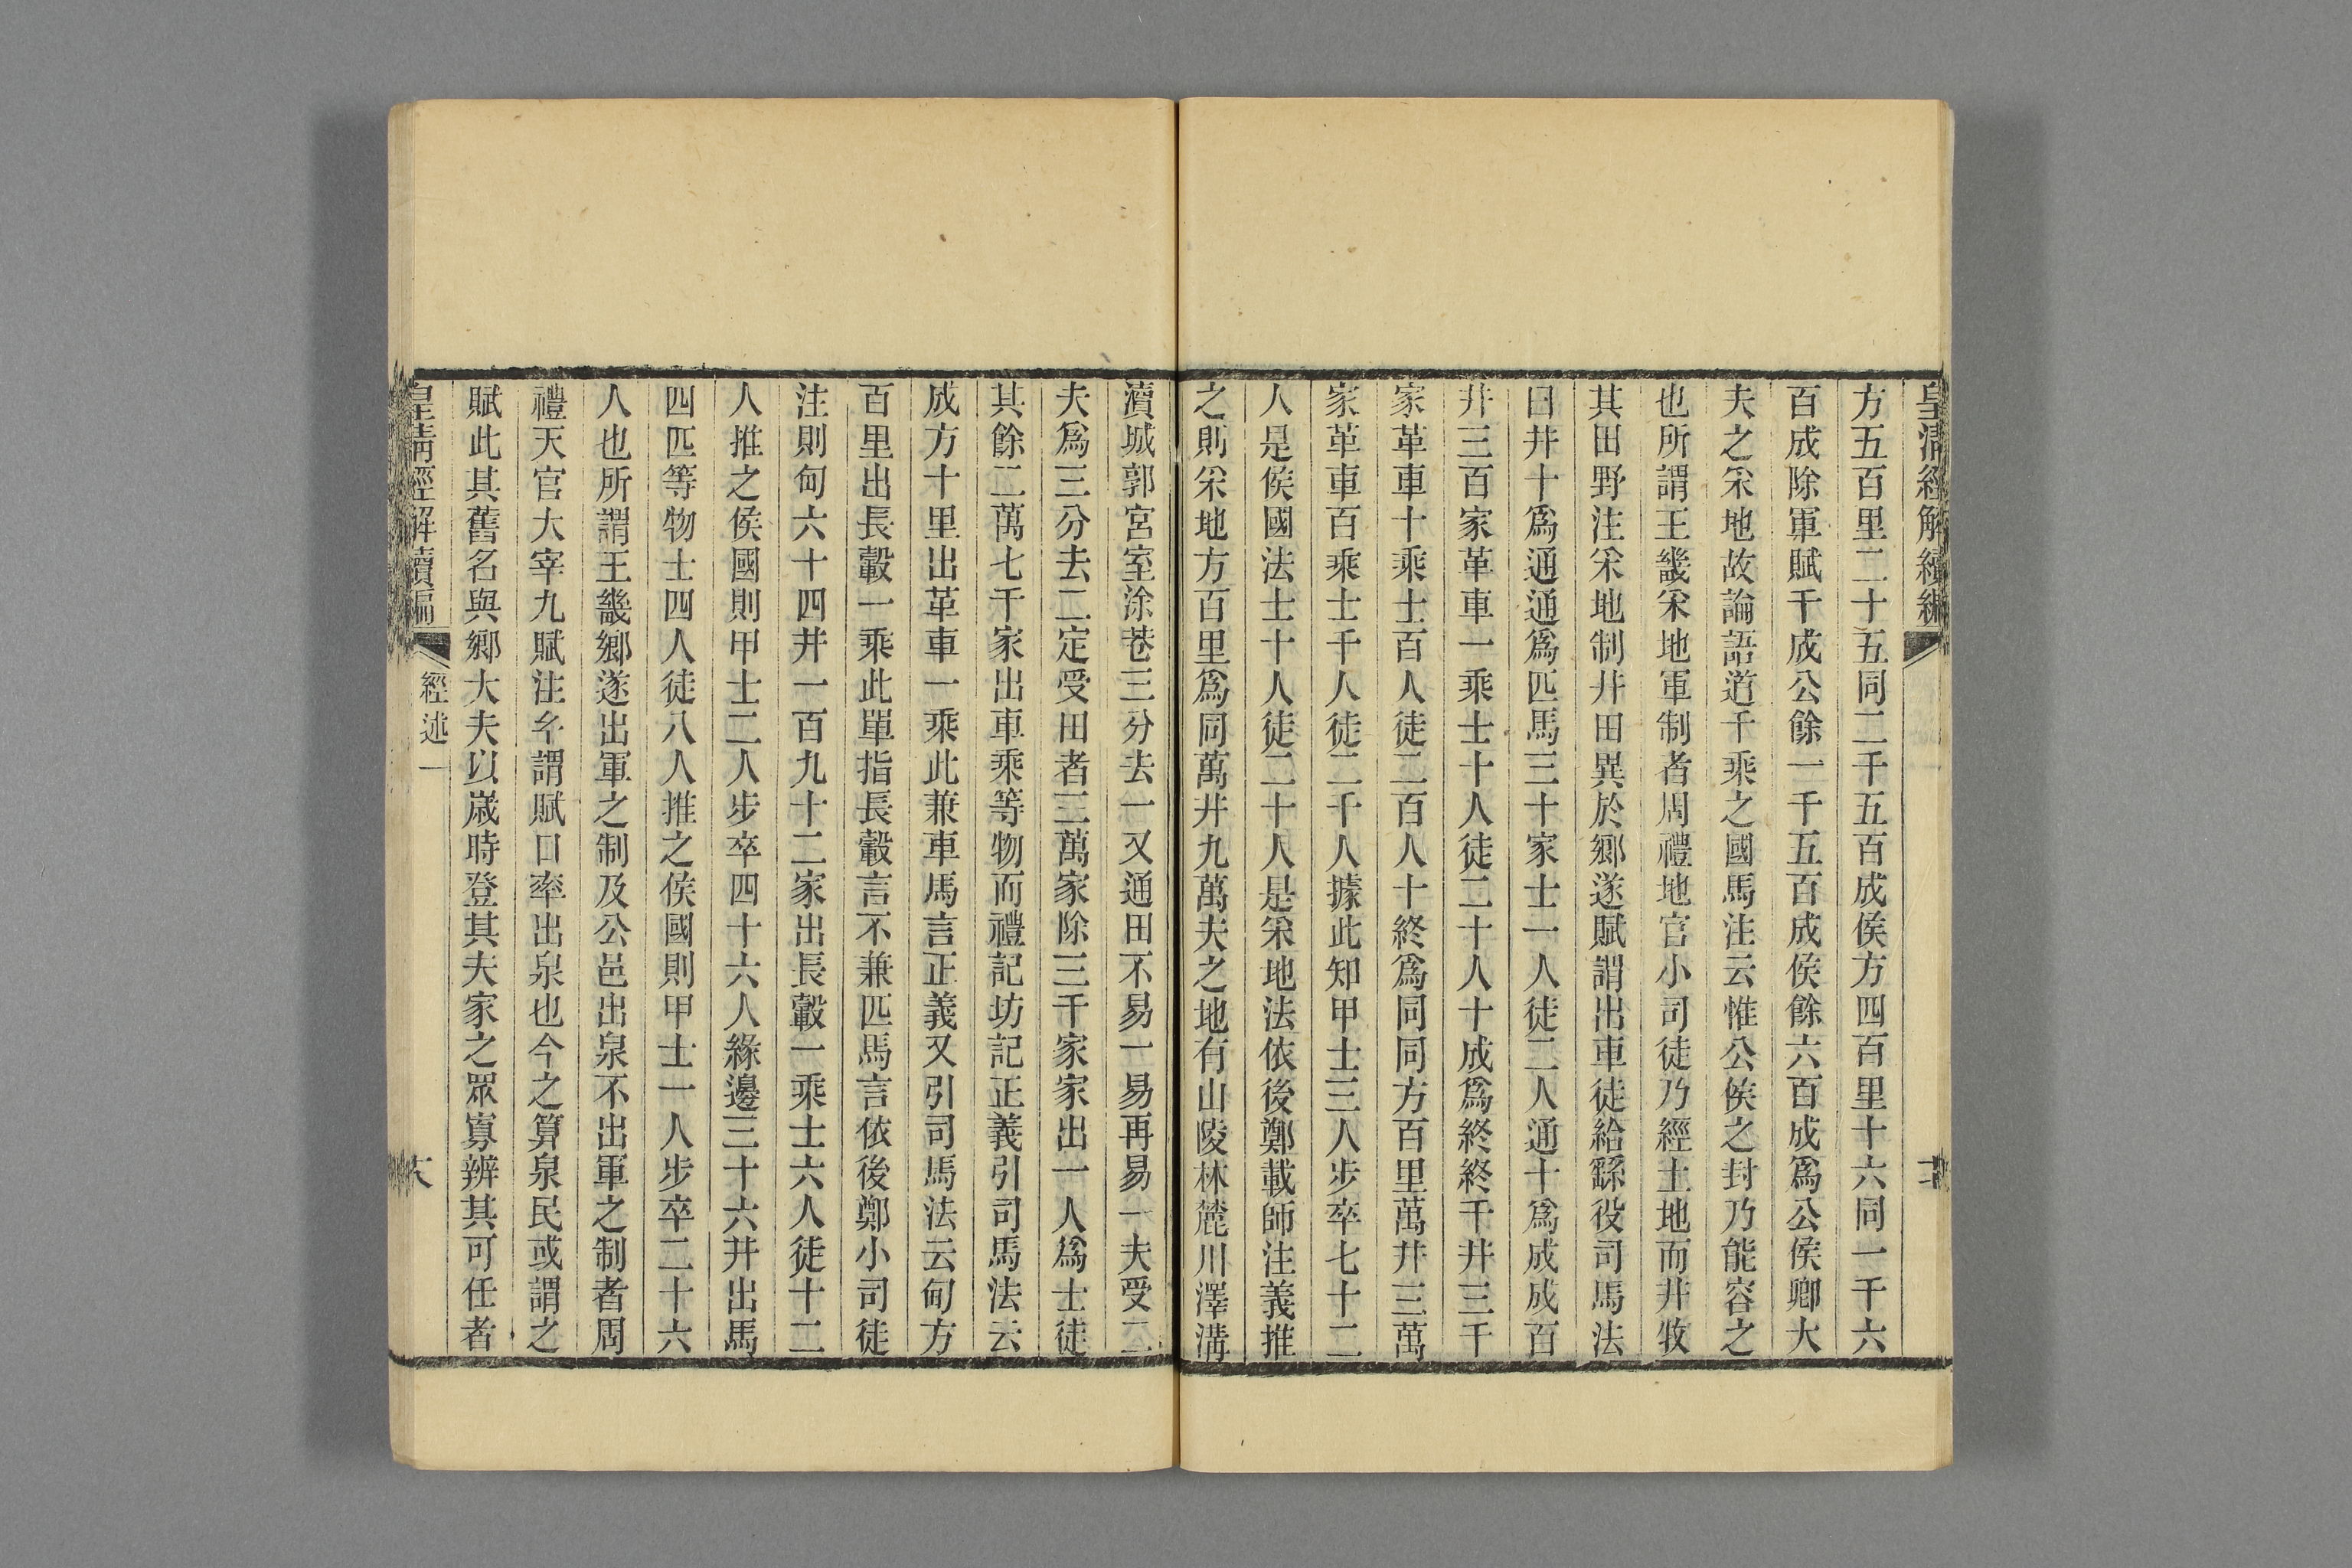 皇清經解續編
方五百里二十五同二千五百成侯方四百里十六同一千六
百成除軍賦千成公餘一千五百成侯餘六百成爲公侯卿大
夫之采地故論語道千乘之國馬注云惟公侯之封乃能容之
也所謂王畿采地軍制者周禮地官小司徒乃經土地而井牧
其田野注采地制井田異於鄉遂賦謂出車徒給繇役司馬法
曰井十爲通通爲匹馬三十家士一人徒二人通十爲成成百
井三百家革車一乘士十人徒二十人十成爲終終千井三千
家革車十乘士百人徒二百人十終爲同同方百里萬井三萬
家革車百乘士千人徒二千人據此知甲士三人步卒七十二
人是侯國法士十人徒二十人是采地法依後鄭載師注義推
之則采地方百里爲同萬井九萬夫之地有山陵林麓川澤溝
瀆城郭宮室涂巷三分去一又通田不易一易再易一夫受二
夫爲三分去二定受田者三萬家除三千家家出一人爲士徒
其餘二萬七千家出車乘等物而禮記坊記正義引司馬法云
成方十里出革車一乘此兼車馬言正義又引司馬法云甸方
百里出長轂一乘此單指長轂言不兼匹馬言依後鄭小司徒
注則甸六十四井一百九十二家出長轂一乘士六人徒十二
人推之侯國則甲士二人步卒四十六人緣邊三十六井出馬
四匹等物士四人徒八人推之侯國則甲士一人步卒二十六
人也所謂王畿鄉遂出軍之制及公邑出泉不出軍之制者周
禮天官大宰九賦注玄謂賦口率出泉也今之算泉民或謂之
賦此其舊名與鄉大夫以歲時登其夫家之眾寡辨其可任者
皇清經解續編
經述一